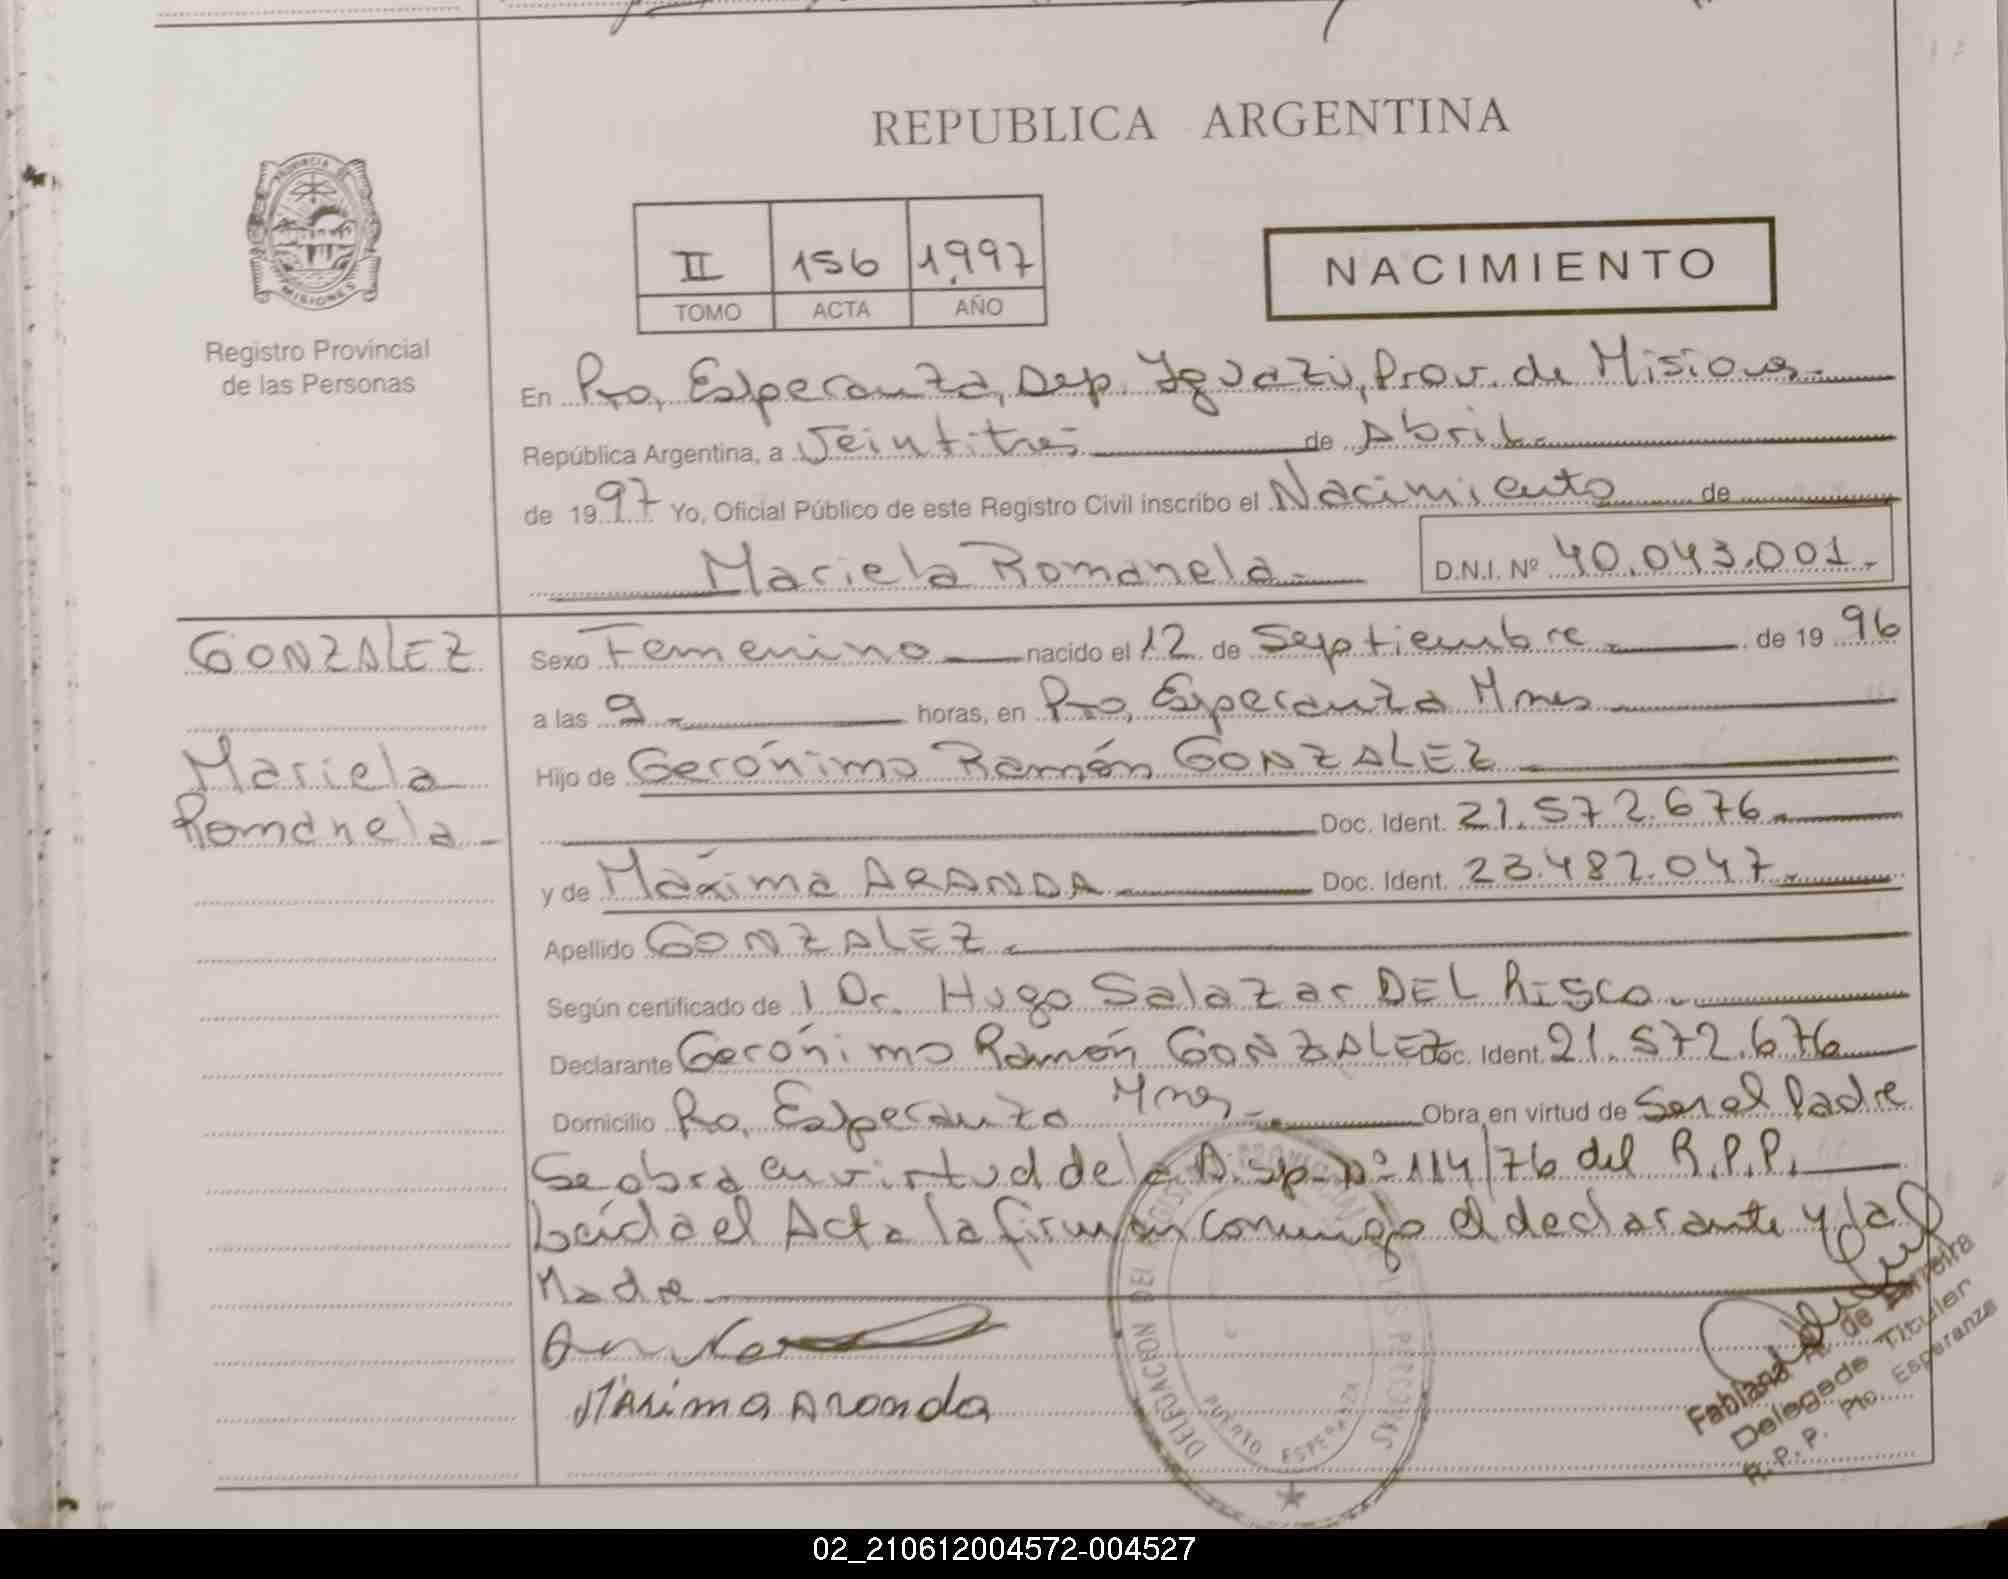 REPUBLICA ARGENTINA
PROVINCIA DE MISIONES
Registro Provincial
de las Personas
II 156 1997
TOMO ACTA AÑO
NACIMIENTO
En Pto, Esperanza, Dep. Iguazú, Prov. de Misiones.
República Argentina, a Veintitres de Abril.
de 1997 Yo, Oficial Público de este Registro Civil inscribo el Nacimiento de
Mariela Romanela. D.N.I. Nº 40.043.001.
GONZALEZ
Mariela
Romanela
Sexo Femenino nacido el 12 de Septiembre de 1996
a las 9. horas, en Pto, Esperanza Mnes
Hijo de Gerónimo Ramón GONZALEZ
Doc. Ident. 21.572.676.
y de Máxima ARANDA Doc. Ident. 23.482.047.
Apellido GONZALEZ.
Según certificado de Dr. Hugo Salazar DEL RISCO.
Declarante Gerónimo Ramón GONZALEZ Doc. Ident. 21.572.676
Domicilio Pto, Esperanza Mnes. Obra en virtud de Ser el Padre
Se obra en virtud de la Disp. Nº 114/76 del R.P.P.
Leída el Acta la firman conmigo el declarante y la
Madre
Máxima Aranda
DELEGACION DEL PERSONAS
PUERTO ESPERANZA
Fabiana de Ferreira
Delegada Titular
R.P.P. Pto. Esperanza
02_210612004572-004527